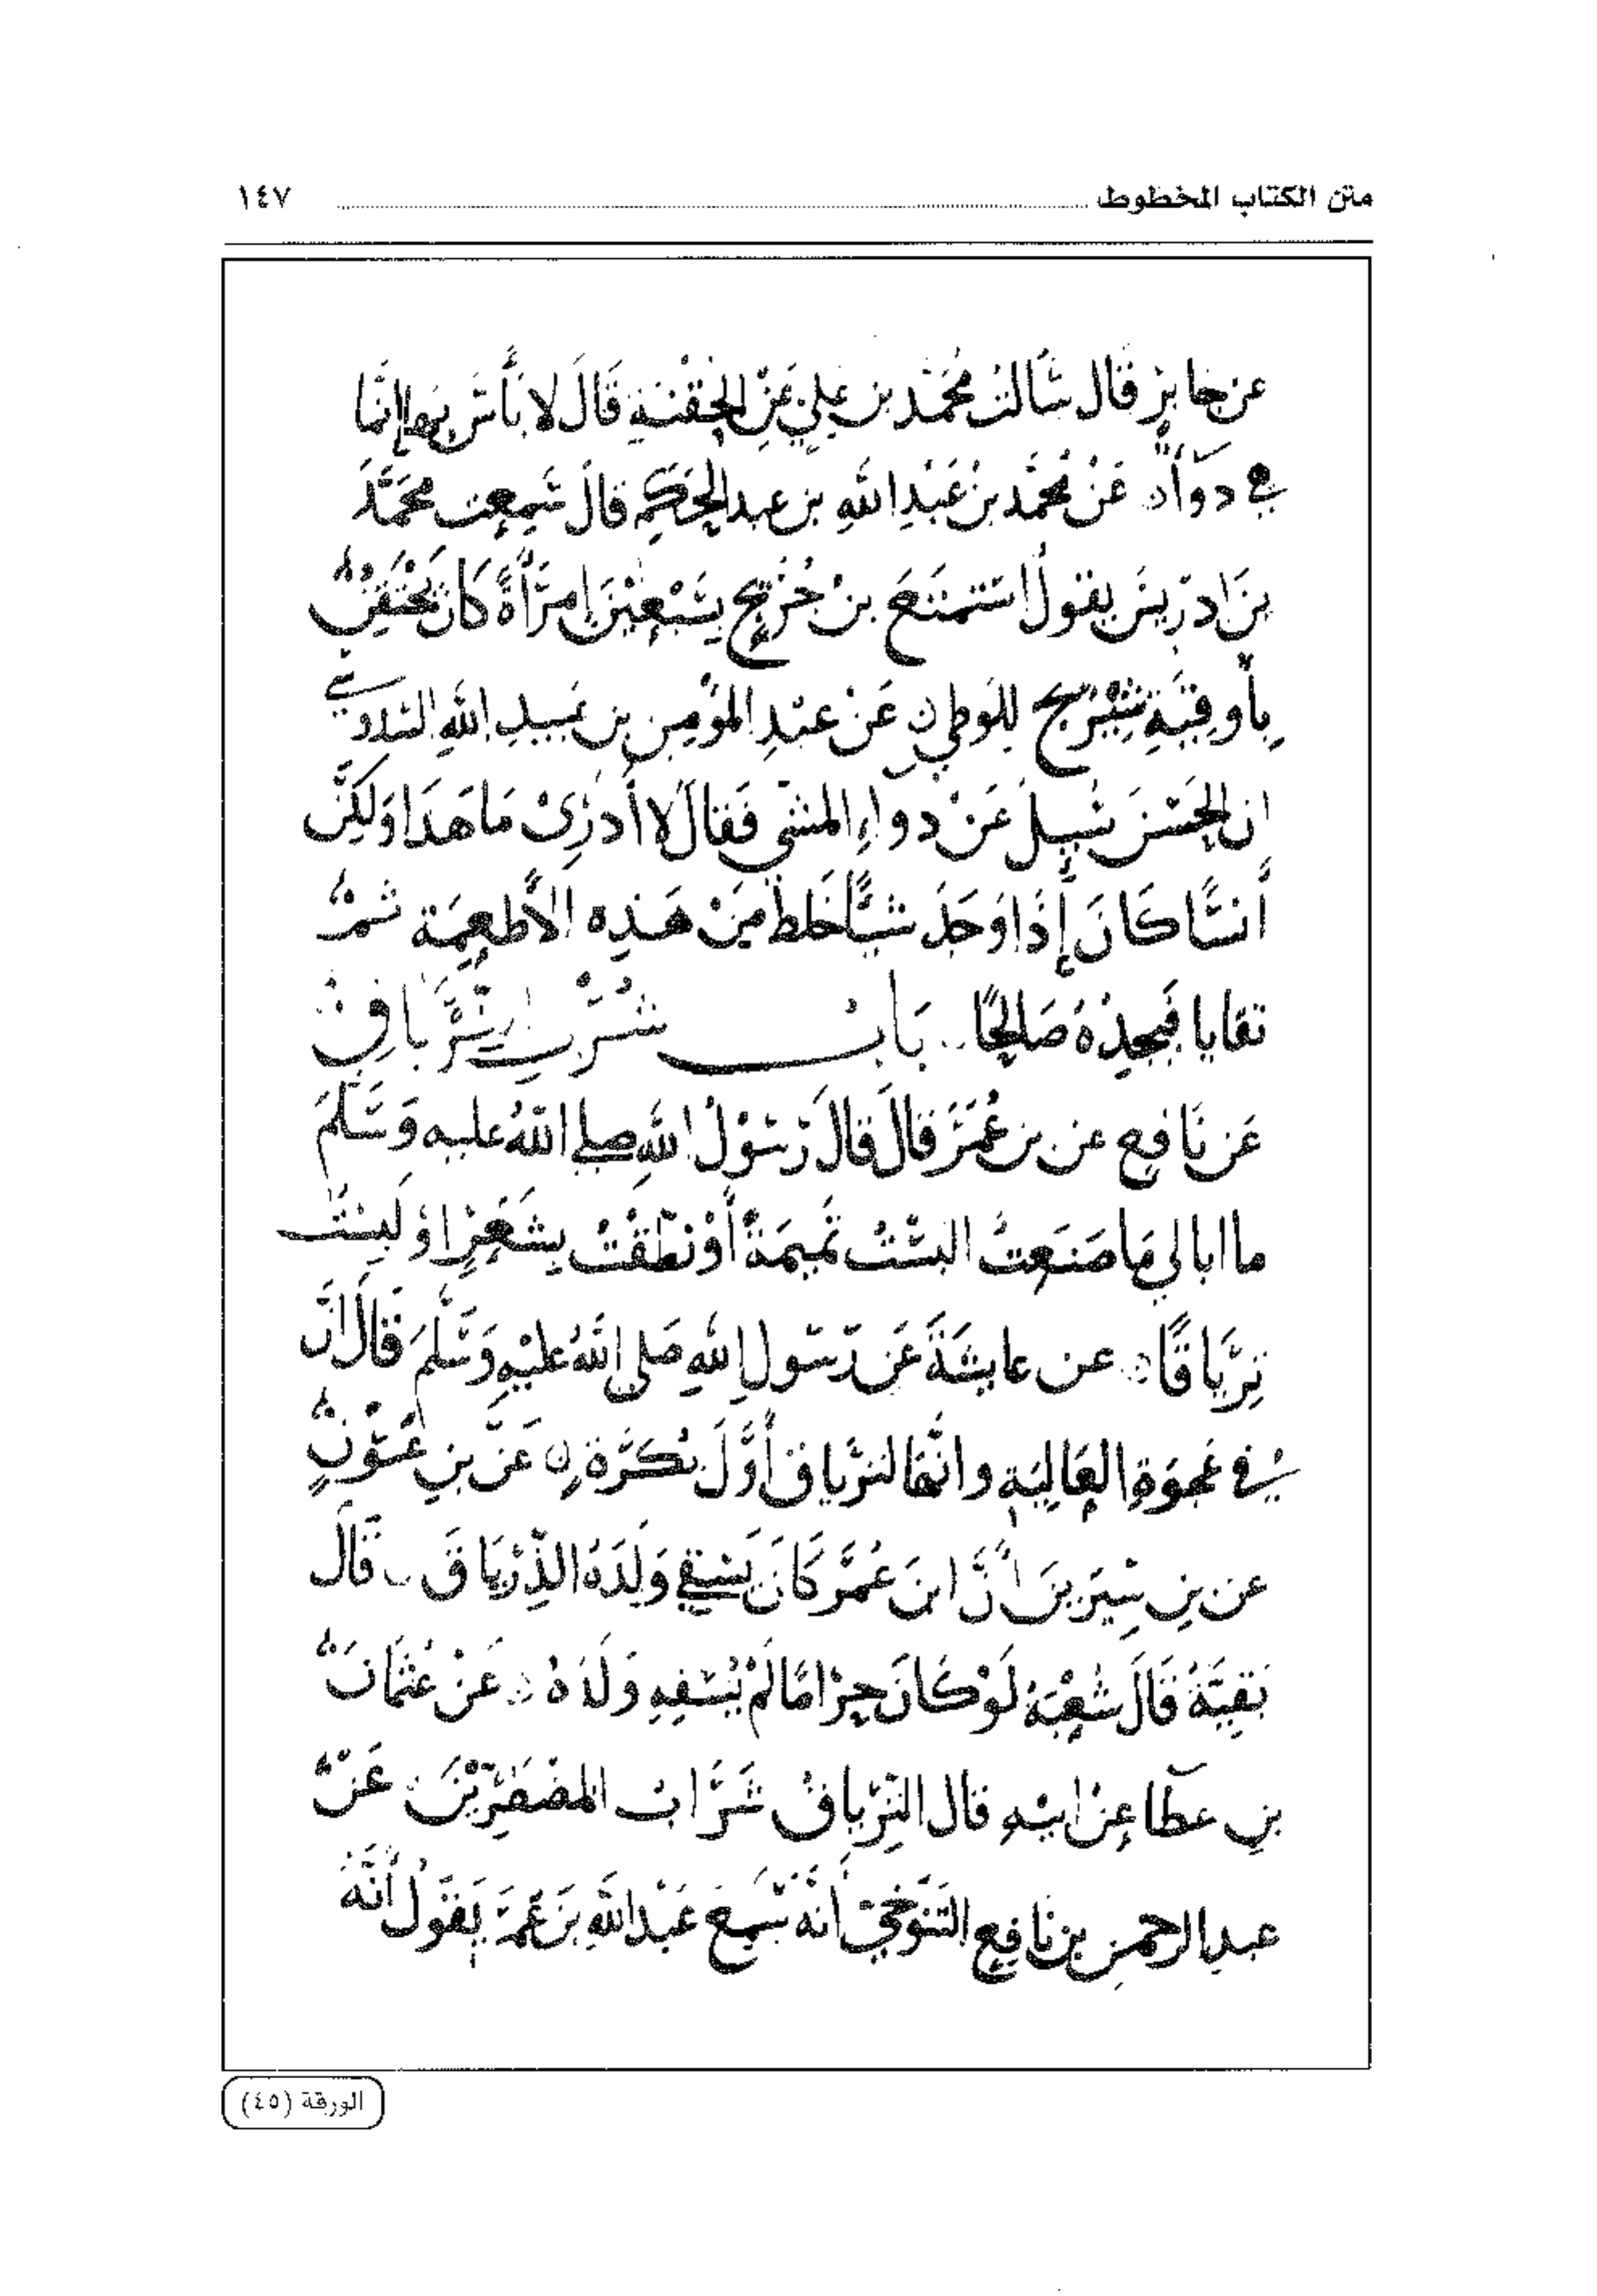 متن الكتاب المخطوط ١٤٧
عن جابر قال سألت محمد بن علي عن الحقنة قال لا بأس بها إنما
هي دوآء عن محمد بن عبد الله بن عبد الحكم قال سمعت محمد
بن ادريس يقول استمتع بن جريج بسبعين امرأة كان يحتقن
بأوقية شيرج للوطي عن عبد المؤمن بن عبيد الله السدوسي
ان الحسن سيل عن دواء المشي فقال لا أدري ما هذا ولكن
أنسا كان إذا وجد شيا خلط من هذه الأطعمة ثم
تقايا فيجده صالحا باب شرب الترياق
عن نافع عن بن عمر قال قال رسول الله صلى الله عليه وسلم
ما ابالي ما صنعت البست تميمة أو نطقت بشعر او لبست
ترياقا عن عايشة عن رسول الله صلى الله عليه وسلم قال ان
في عجوة العالية وانها الترياق أول بكرة عن بن عون
عن بن سيرين أن ابن عمر كان يسقي ولده الذرياق قال
بقية قال شعبة لو كان حراما لم يسقه ولده عن عثمان
بن عطا عن ابيه قال الترياق شراب المضفرين عن
عبد الرحمن بن نافع التنوخي أنه سمع عبد الله بن عمر يقول أنه
الورقة (٤٥)